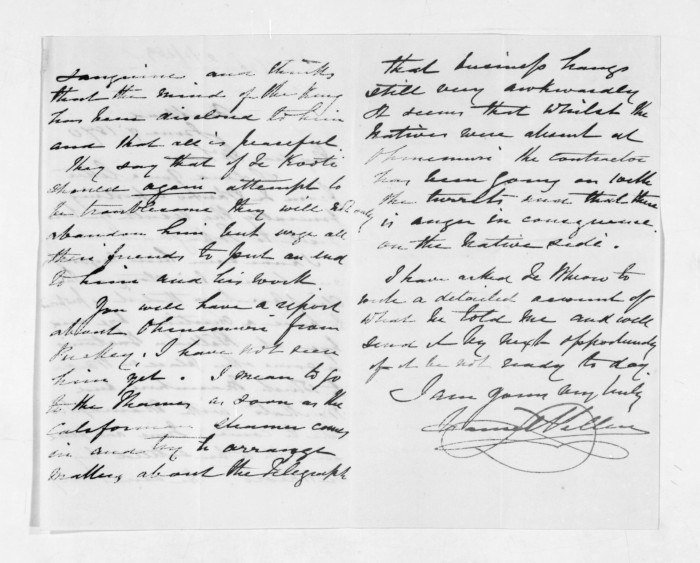 sanguine and thinks
that the mind of the King
has been disclosed to him
and that all is peaceful.
They say that if Te Kooti
should again attempt to
be troublesome they will not only
abandon him but urge all
their friends to put an end
to him and his work.
You will have a report
about Ohinemuri from
Puckey. I have not seen
him yet. I mean to go
to the Thames as soon as the
Californian steamer comes
in and try to arrange
matters about the Telegraph
that business hangs
still very awkwardly
It seems that whilst the
Natives were absent at
Ohinemuri the contractor
has been going on with
the turrets and that there
is anger in consequence
on the Native side.
I have asked Te Wheoro to
write a detailed account of
what he told me and will
send it by next opportunity
if it be not ready to day.
I am yours very truly